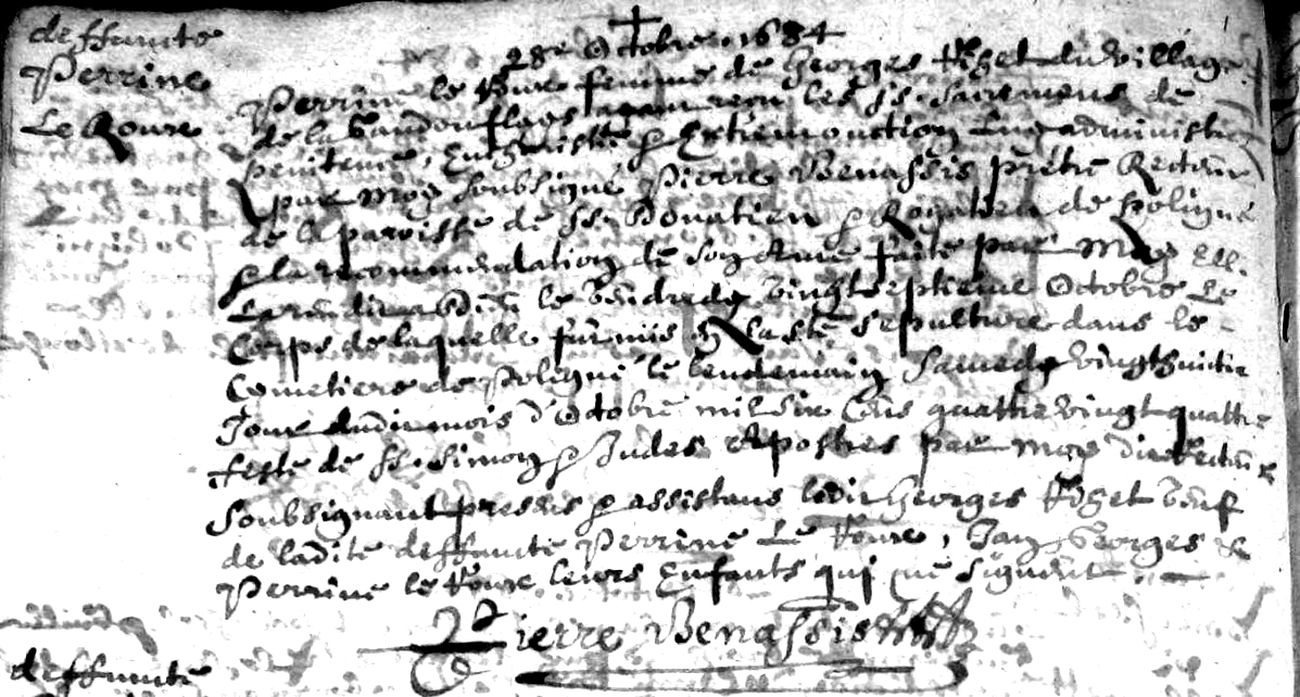 deffuncte
Perrine
Le Roux
28e Octobre 1684
Perrine le Roux femme de Georges du village
de la ayant receu les ss. sacremens de
penitence, Eucharistie & Extremonction luy administrez
par moy soubsigné Pierre Benassis prêtre Recteur
de la parroisse de ss. Donatien & Rogatien de poligné
& la recommendation de son ame faite par moy Ell.
le vendredy vingt septieme Octobre Le
Corps de laquelle fut mis en la ste sepulture dans le
Cometiere de Poligné le lendemain Samedy vingt huictie
Jour dudit mois d'Octobre mil six Cens quattre vingt quattre
feste de ss. Simon & Judes Apostres par moy dit Recteur
Soubsignant presens & assistans ledit Georges veuf
de ladite deffuncte Perrine Le Roux, Jan, Georges &
Perrine le Roux leurs Enfants qui ne signent.
Pierre Benassis
deffuncte